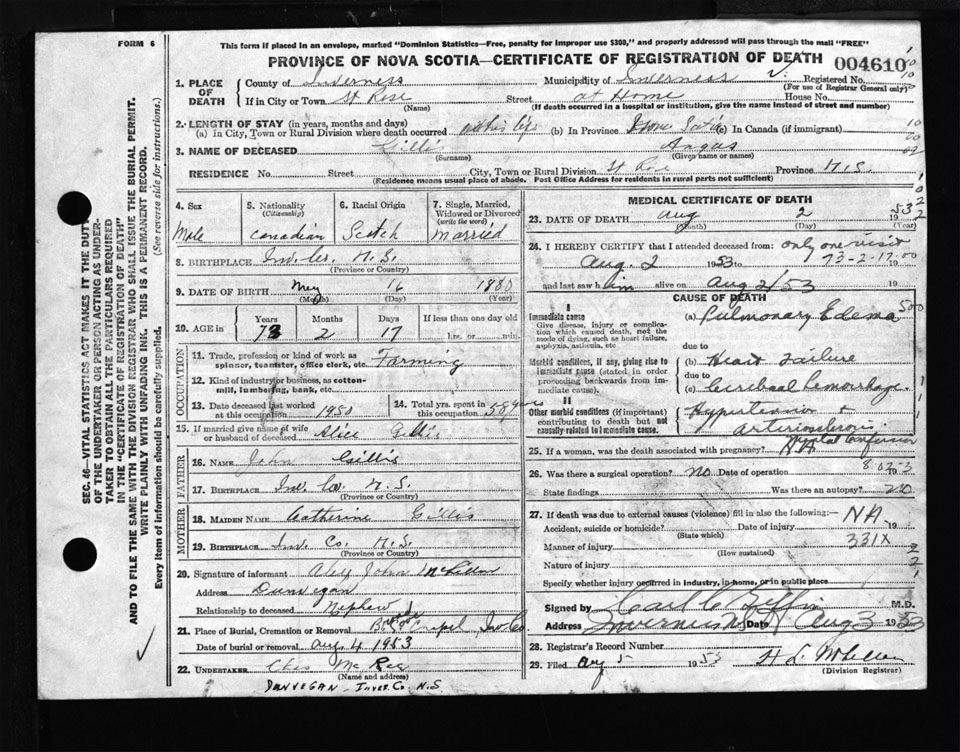 FORM 6
This form if placed in an envelope, marked "Dominion Statistics—Free, penalty for improper use $300," and properly addressed will pass through the mail "FREE"
PROVINCE OF NOVA SCOTIA—CERTIFICATE OF REGISTRATION OF DEATH 004610
SEC. 46—VITAL STATISTICS ACT MAKES IT THE DUTY
OF THE UNDERTAKER OR PERSON ACTING AS UNDER-
TAKER TO OBTAIN ALL THE PARTICULARS REQUIRED
IN THE "CERTIFICATE OF REGISTRATION OF DEATH"
AND TO FILE THE SAME WITH THE DIVISION REGISTRAR WHO SHALL ISSUE THE BURIAL PERMIT.
WRITE PLAINLY WITH UNFADING INK. THIS IS A PERMANENT RECORD.
Every item of information should be carefully supplied. (See reverse side for instructions.)
1. PLACE OF DEATH County of Inverness Municipality of Inverness Registered No.
(For use of Registrar General only)
If in City or Town St Rose Street at Home House No.
(Name) (If death occurred in a hospital or institution, give the name instead of street and number)
2. LENGTH OF STAY (in years, months and days)
(a) In City, Town or Rural Division where death occurred (b) In Province (c) In Canada (if immigrant)
3. NAME OF DECEASED Gillis Angus
(Surname) (Given name or names)
RESIDENCE No. Street City, Town or Rural Division St Rose Province N.S.
(Residence means usual place of abode. Post Office Address for residents in rural parts not sufficient)
4. Sex Male
5. Nationality (Citizenship) Canadian
6. Racial Origin Scotch
7. Single, Married, Widowed or Divorced (write the word) Married
8. BIRTHPLACE Inv. Co. N.S.
(Province or Country)
9. DATE OF BIRTH May 16 1880
(Month) (Day) (Year)
10. AGE in Years 73 Months 2 Days 17 If less than one day old hrs. or min.
OCCUPATION
11. Trade, profession or kind of work as spinner, teamster, office clerk, etc. Farming
12. Kind of industry or business, as cotton-mill, lumbering, bank, etc.
13. Date deceased last worked at this occupation 1950
14. Total yrs. spent in this occupation 58 years
15. If married give name of wife or husband of deceased Alice Gillis
FATHER
16. NAME John Gillis
17. BIRTHPLACE Inv. Co. N.S.
(Province or Country)
MOTHER
18. MAIDEN NAME Catherine Gillis
19. BIRTHPLACE Inv. Co. N.S.
(Province or Country)
20. Signature of informant Alex John McLellan
Address Dunvegan
Relationship to deceased Nephew
21. Place of Burial, Cremation or Removal Chapel, Inv. Co
Date of burial or removal Aug. 4 1953
22. UNDERTAKER Chas McRae
(Name and address)
DUNVEGAN - Inver. Co N.S
MEDICAL CERTIFICATE OF DEATH
23. DATE OF DEATH Aug 2 1953
(Month) (Day) (Year)
24. I HEREBY CERTIFY that I attended deceased from: only one visit
Aug. 2 1953 73-2-17.00
and last saw him alive on Aug 2/53 19
CAUSE OF DEATH
I
Immediate cause
Give disease, injury or complication which caused death, not the mode of dying, such as heart failure, asphyxia, asthenia, etc
(a) Pulmonary Edema
due to
Morbid conditions, if any, giving rise to immediate cause (stated in order proceeding backwards from immediate cause).
(b) Heart Failure
due to
(c) Cerebral Hemorrhage.
II
Other morbid conditions (if important) contributing to death but not causally related to immediate cause.
Hypertension &
arteriosclerosis
25. If a woman, was the death associated with pregnancy? NA
26. Was there a surgical operation? no Date of operation 19
State findings Was there an autopsy? no
27. If death was due to external causes (violence) fill in also the following:— NA
Accident, suicide or homicide? Date of injury 19
(State which)
331X
Manner of injury
(How sustained)
Nature of injury
Specify whether injury occurred in industry, in home, or in public place
Signed by M.D.
Address Inverness N.S. Date Aug 3 1953
28. Registrar's Record Number
29. Filed Aug 5 1953
(Division Registrar)